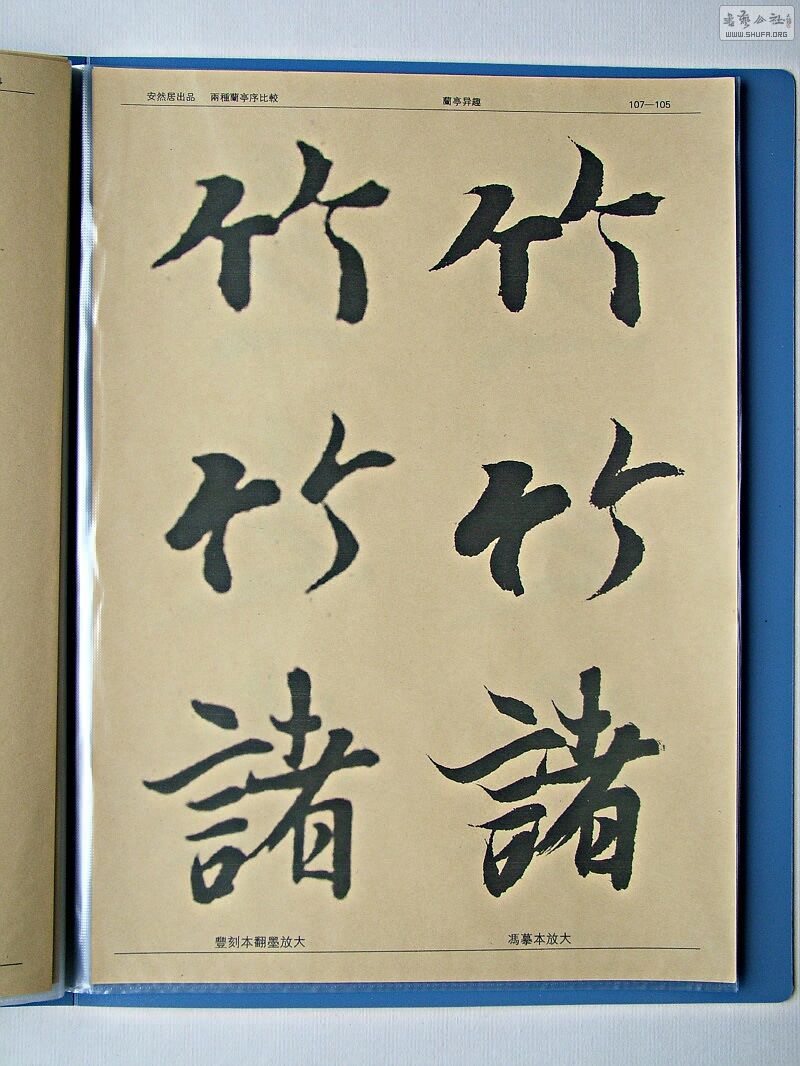 書藝公社
WWW.SHUFA.ORG
安然居出品 兩種蘭亭序比較 蘭亭异趣 107—105
竹 竹
竹 竹
諸 諸
豐刻本翻墨放大 馮摹本放大